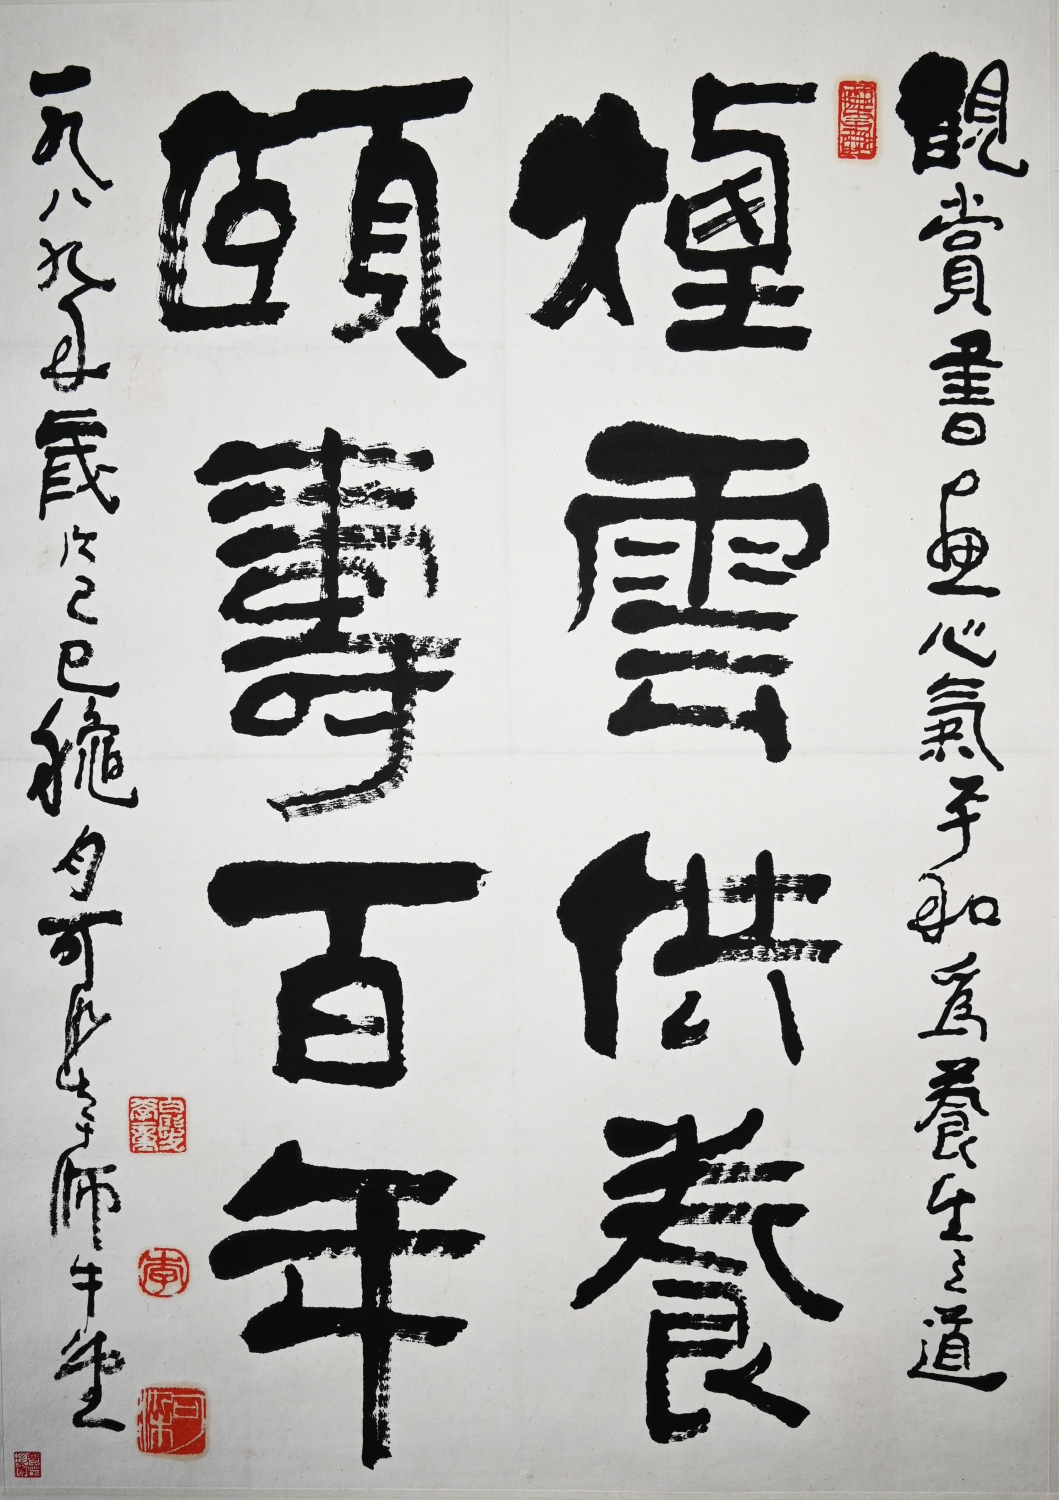 觀賞書畫心氣平和為養生之道
煙雲供養
頤壽百年
一九八九年歲次己巳龝月可染於師牛堂